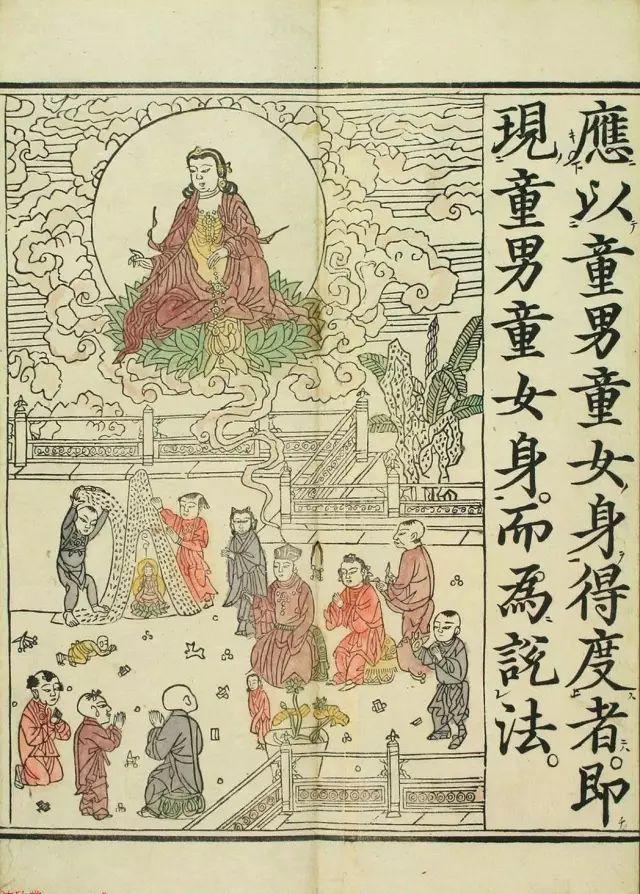 應以童男童女身得度者。即
現童男童女身。而爲說法。